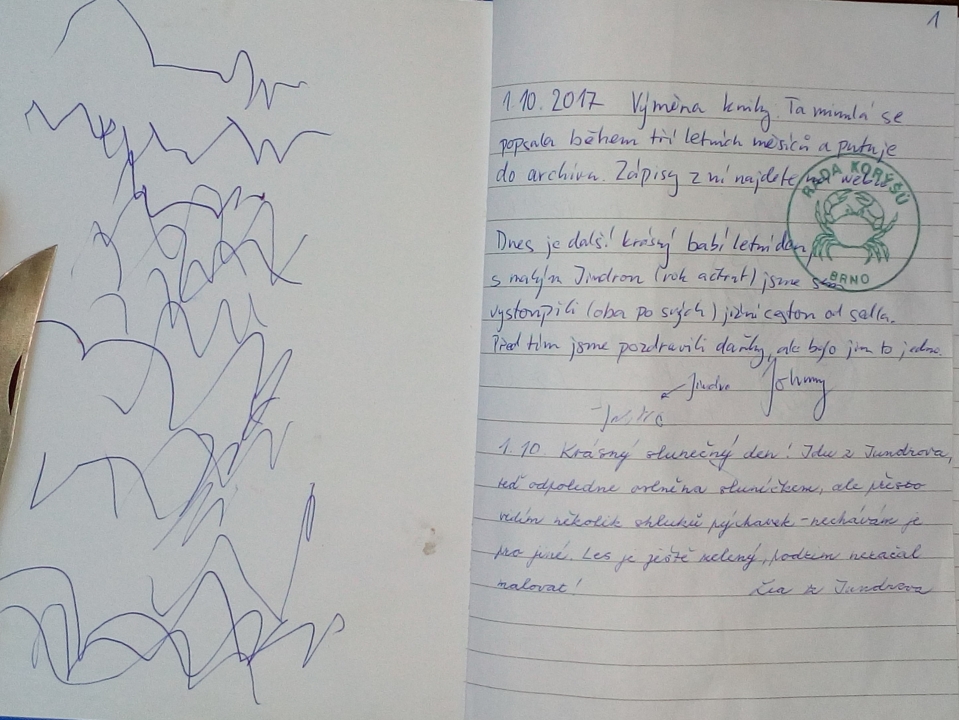 1
1.10.2017 Výměna knihy. Ta minulá se
popsala během tří letních měsíců a putuje
do archivu. Zápisy z ní najdete na webu
RADA KORÝŠŮ
BRNO
Dnes je další krásný babí letní den,
s malým Jindrou (rok a čtvrt) jsme sem
vystoupili (oba po svých) jižní cestou od sedla.
Před tím jsme pozdravili daňky, ale bylo jim to jedno.
Jindra Johnny
1.10. Krásný slunečný den! Jdu z Jundrova,
teď odpoledne sluníčkem, ale přesto
vidím několik shluků pýchavek - nechávám je
pro jiné. Les je ještě zelený, podzim nezačal
malovat! z Jundrova